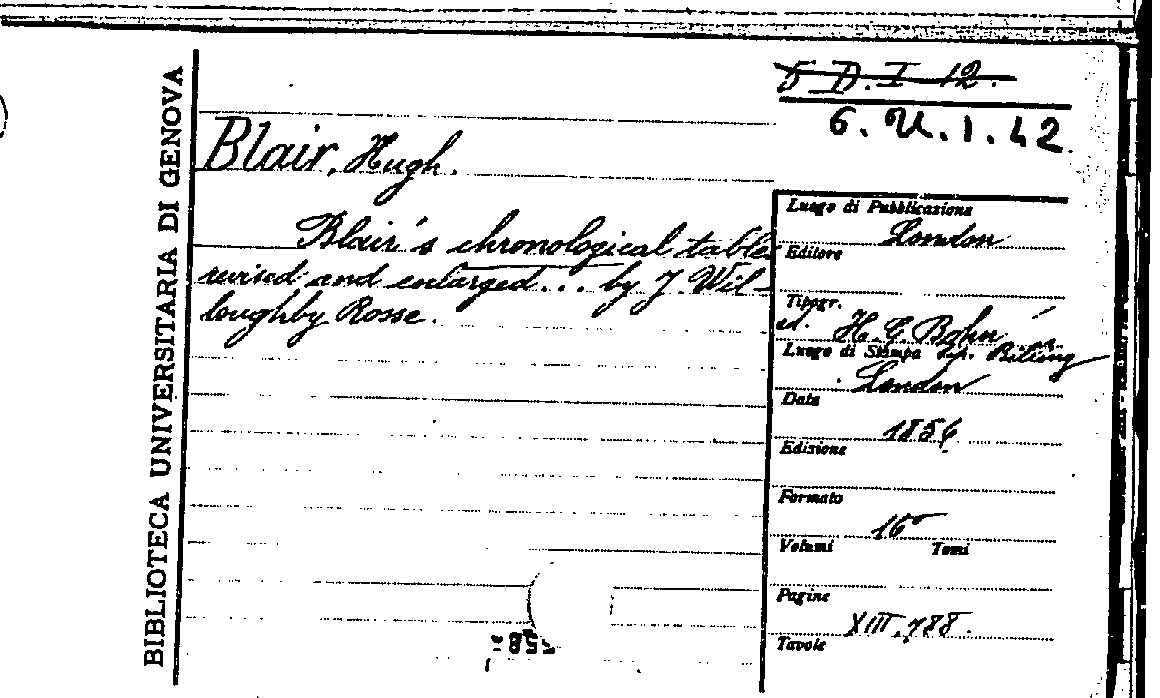 BIBLIOTECA UNIVERSITARIA DI GENOVA
5 D. I 12.
6. U. 1. 42
Blair, Hugh.
Blair's chronological tables
revised and enlarged... by J. Wil-
loughby Rosse.
Luogo di Pubblicazione
London
Editore
Tipogr.
ed. H. G. Bohn
Luogo di Stampa tip. Billing
London
Data
1856
Edizione
Formato
16°
Volumi Tomi
Pagine
XIII, 788.
Tavole